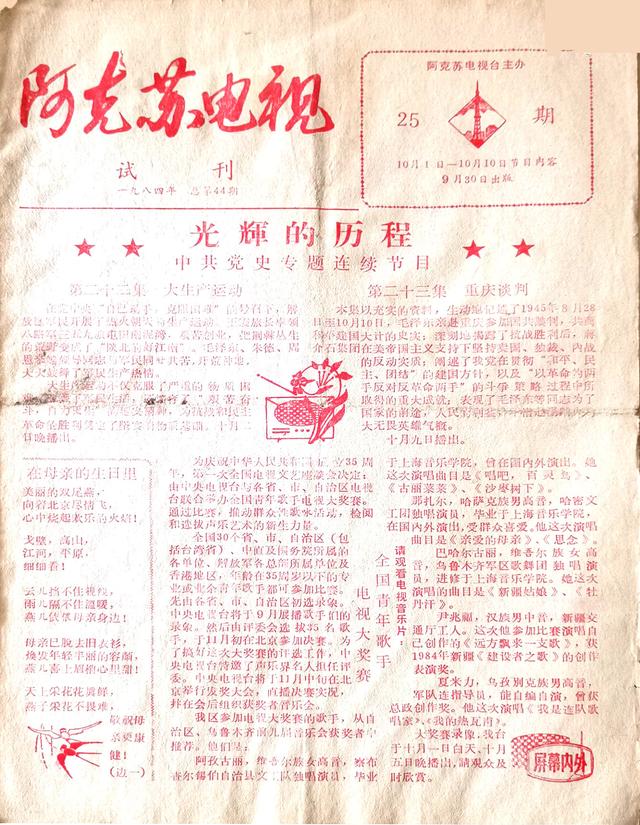 阿克苏电视
试刊
一九八四年 总第44期
阿克苏电视台主办
25 期
10月1日—10月10日节目内容
9月30日出版
光輝的历程
中共党史专题连续节目
第二十二集 大生产运动
在党中央"自己动手，克服困难"的号召下，解
大生产运动不仅克服了严重的物质困
日晚播出。
第二十三集 重庆谈判
本集以充实的资料，生动地记述了1945年8月28
日至10月10日，毛泽东亲赴重庆参加国共谈判，共商
和平建国大计的史实；深刻地揭露了抗战胜利后，蒋
介石集团在美帝国主义支持下坚持卖国、独裁、内战
的反动实质；阐述了我党在贯彻"和平、民
主、团结"的建国方针，以及"以革命的两
手反对反革命两手"的斗争策略过程中所
取得的重大成就；表现了毛泽东等同志为了
国家的前途，人民的利益
大无畏英雄气概。
十月九日播出。
在母亲的生日里
美丽的双尾燕，
向着北京尽情飞，
心中烧起欢乐的火焰！
戈壁，高山，
江河，平原，
细细看！
云儿挡不住视线，
雨儿隔不住温暖，
燕儿依偎母亲身边！
母亲已脱去旧衣衫，
焕发年轻丰丽的容颜，
燕儿喜上眉梢心里甜！
天上采花花真鲜，
燕子采花不畏难，
敬祝母
亲更康
健！
（边一）
为庆祝中华人民共和国成立35周
年，第一次全国电视文艺座谈会决定：
由中央电视台与各省、市、自治区电视
台联合举办全国青年歌手电视大奖赛。
通过比赛，推动群众性歌咏活动，检阅
和选拔声乐艺术的新生力量。
全国30个省、市、自治区（包
括台湾省）、中直及国务院所属的
各单位、解放军各总部所属单位及
香港地区，年龄在35周岁以下的专
业或业余青年歌手都可参加比赛。
先由各省、市、自治区初选录象。
中央电视台将于9月展播歌手们的
录象。然后由评委会选拔35名歌
手，于11月初在北京参加决赛。为
了搞好这次大奖赛的评选工作，中
央电视台特邀了声乐界名人担任评
委。中央电视台将于11月中旬在北
京举行发奖大会，直播决赛实况，
并在会后组织获奖者音乐会。
我区参加电视大奖赛的歌手，从自
治区、乌鲁木齐前九届音乐会获奖者中
推荐。他们是：
阿孜古丽，维吾尔族女高音，察布
查尔锡伯自治县文工队独唱演员，毕业
请观看电视音乐片：
全国青年歌手
电视大奖赛
于上海音乐学院，曾在国内外演出。她
这次演唱曲目是《唱吧，百灵鸟》、
《古丽莱莱》、《沙枣树下》。
那扎尔，哈萨克族男高音，哈密文
工团独唱演员，毕业于上海音乐学院，
在国内外演出，受群众喜爱。他这次演唱
曲目是《亲爱的母亲》、《思念》。
巴哈尔古丽，维吾尔族女高
音，乌鲁木齐军区歌舞团独唱演
员，进修于上海音乐学院。她这次
演唱的曲目是《新疆姑娘》、《牡
丹汗》。
尹兆福，汉族男中音，新疆交
通厅工人。这次他参加比赛演唱自
己创作的《远方飘来一支歌》，获
1984年新疆《建设者之歌》的创作
表演奖。
夏米力，乌孜别克族男高音，
军队连指导员，能自编自演，曾获
总政创作奖。他这次演唱《我是连队歌
唱家》、《我的热瓦甫》。
大奖赛录像，我台于
十月一日白天、十月
五日晚播出，请观众及
时欣赏。
屏幕内外